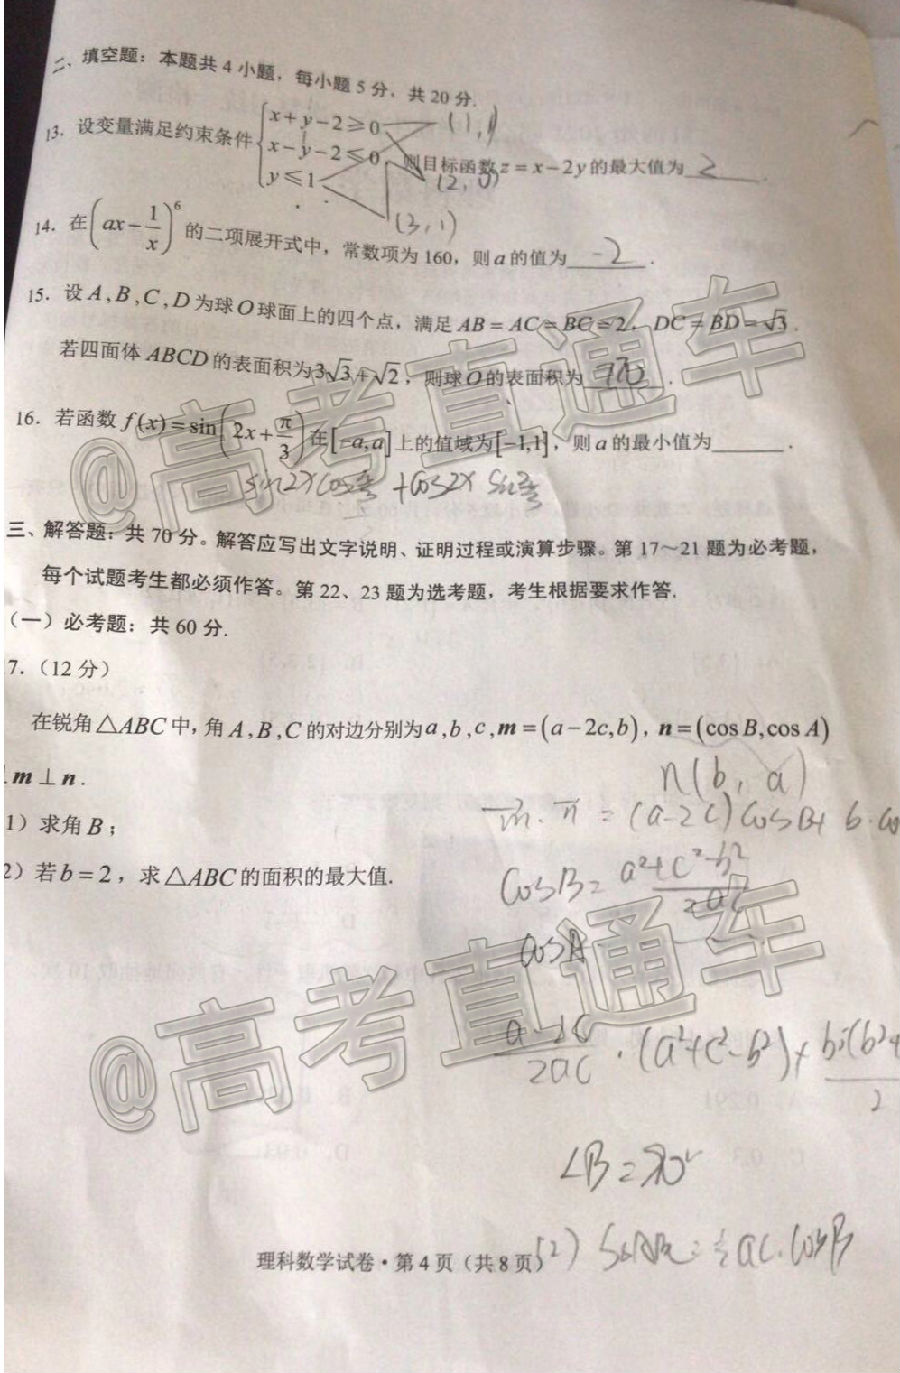 二、填空题：本题共 4 小题，每小题 5 分，共 20 分.
13. 设变量满足约束条件{x+y−2≥0 x−y−2≤0 y≤1 则目标函数 z = x−2y 的最大值为 2 .
(1,1)
(2,0)
(3,1)
14. 在(ax − 1/x)^6 的二项展开式中，常数项为 160，则 a 的值为 -2 .
15. 设 A,B,C,D 为球 O 球面上的四个点，满足 AB = AC = BC = 2，DC = BD = √3 .
若四面体 ABCD 的表面积为 3√3+√2，则球 O 的表面积为 .
16. 若函数 f(x) = sin(2x + π/3) 在 [−a,a] 上的值域为 [−1,1]，则 a 的最小值为 .
sin2x cos + cos2x sin
三、解答题：共 70 分。解答应写出文字说明、证明过程或演算步骤。第 17～21 题为必考题，
每个试题考生都必须作答。第 22、23 题为选考题，考生根据要求作答.
（一）必考题：共 60 分.
7.（12 分）
在锐角△ABC 中，角 A,B,C 的对边分别为 a,b,c, m = (a−2c,b)，n = (cos B,cos A)
m ⊥ n .
n(b, a)
1）求角 B；
m·n = (a-2c)cosB+ b·co
2）若 b = 2，求△ABC 的面积的最大值.
cosB = a²+c²-b² / 2ac
cosA
a-2c / 2ac · (a²+c²-b²)+ b·(b²+ / 2
∠B = 90°
理科数学试卷·第 4 页（共 8 页）
(2) S = ½ ac·cosB
@高考直通车
@高考直通车